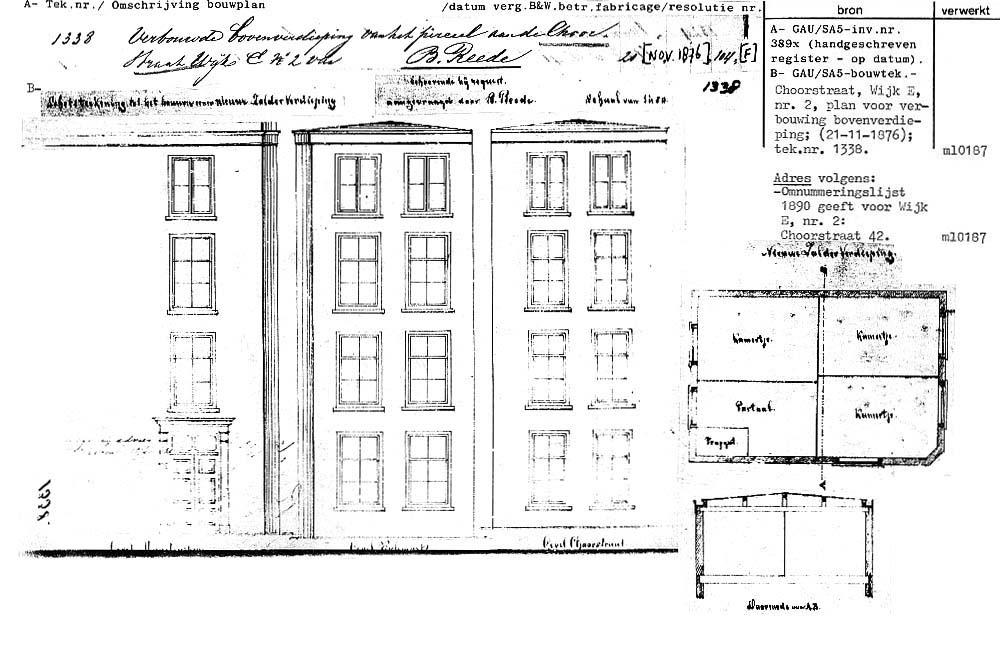 A- Tek.nr./ Omschrijving bouwplan
/datum verg.B&W.betr.fabricage/resolutie nr.
bron
verwerkt
1338 Verbouwde bovenverdieping van het perceel aan de Choor-
straat Wijk E No 2 door B. Reede
21 [NOV. 1876], [F]
1338
B-
nieuwe Zolder Verdieping
behoorende bij request.
aangevraagd door B. Reede.
Schaal van
A- GAU/SA5-inv.nr.
389x (handgeschreven
register - op datum).
B- GAU/SA5-bouwtek.-
Choorstraat, Wijk E,
nr. 2, plan voor ver-
bouwing bovenverdie-
ping; (21-11-1876);
tek.nr. 1338.
ml0187
Adres volgens:
-Omnummeringslijst
1890 geeft voor Wijk
E, nr. 2:
Choorstraat 42.
ml0187
Nieuwe Zolder Verdieping.
Kamertje.
Kamertje.
Portaal.
Kamertje.
Trapgat.
A
1338.
Gevel Choorstraat
Doorsnede over A.B.